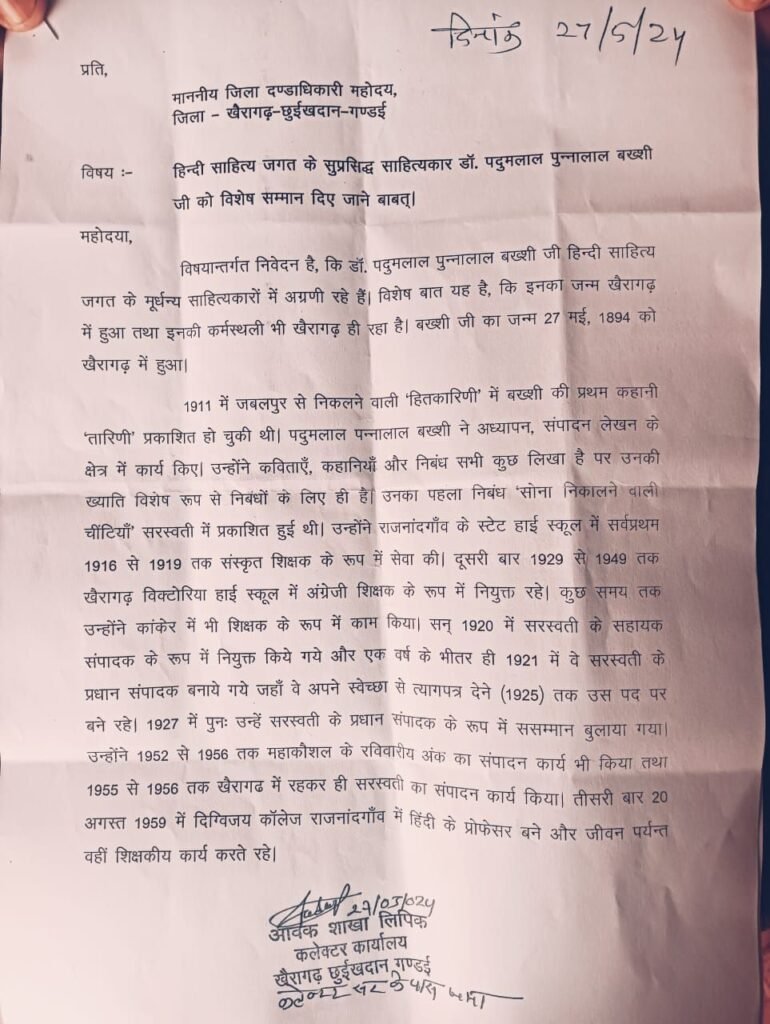 दिनांक 27/5/24
प्रति,
माननीय जिला दण्डाधिकारी महोदय,
जिला - खैरागढ़-छुईखदान-गण्डई
विषय :- हिन्दी साहित्य जगत के सुप्रसिद्ध साहित्यकार डॉ. पदुमलाल पुन्नालाल बख्शी
जी को विशेष सम्मान दिए जाने बाबत्।
महोदया,
विषयान्तर्गत निवेदन है, कि डॉ. पदुमलाल पुन्नालाल बख्शी जी हिन्दी साहित्य
जगत के मूर्धन्य साहित्यकारों में अग्रणी रहे हैं। विशेष बात यह है, कि इनका जन्म खैरागढ़
में हुआ तथा इनकी कर्मस्थली भी खैरागढ़ ही रहा है। बख्शी जी का जन्म 27 मई, 1894 को
खैरागढ़ में हुआ।
1911 में जबलपुर से निकलने वाली 'हितकारिणी' में बख्शी की प्रथम कहानी
'तारिणी' प्रकाशित हो चुकी थी। पदुमलाल पन्नालाल बख्शी ने अध्यापन, संपादन लेखन के
क्षेत्र में कार्य किए। उन्होंने कविताएँ, कहानियाँ और निबंध सभी कुछ लिखा है पर उनकी
ख्याति विशेष रूप से निबंधों के लिए ही है। उनका पहला निबंध 'सोना निकालने वाली
चींटियाँ' सरस्वती में प्रकाशित हुई थी। उन्होंने राजनांदगाँव के स्टेट हाई स्कूल में सर्वप्रथम
1916 से 1919 तक संस्कृत शिक्षक के रूप में सेवा की। दूसरी बार 1929 से 1949 तक
खैरागढ़ विक्टोरिया हाई स्कूल में अंग्रेजी शिक्षक के रूप में नियुक्त रहे। कुछ समय तक
उन्होंने कांकेर में भी शिक्षक के रूप में काम किया। सन् 1920 में सरस्वती के सहायक
संपादक के रूप में नियुक्त किये गये और एक वर्ष के भीतर ही 1921 में वे सरस्वती के
प्रधान संपादक बनाये गये जहाँ वे अपने स्वेच्छा से त्यागपत्र देने (1925) तक उस पद पर
बने रहे। 1927 में पुनः उन्हें सरस्वती के प्रधान संपादक के रूप में ससम्मान बुलाया गया।
उन्होंने 1952 से 1956 तक महाकौशल के रविवारीय अंक का संपादन कार्य भी किया तथा
1955 से 1956 तक खैरागढ में रहकर ही सरस्वती का संपादन कार्य किया। तीसरी बार 20
अगस्त 1959 में दिग्विजय कॉलेज राजनांदगाँव में हिंदी के प्रोफेसर बने और जीवन पर्यन्त
वहीं शिक्षकीय कार्य करते रहे।
27/05/024
आवक शाखा लिपिक
कलेक्टर कार्यालय
खैरागढ़ छुईखदान गण्डई